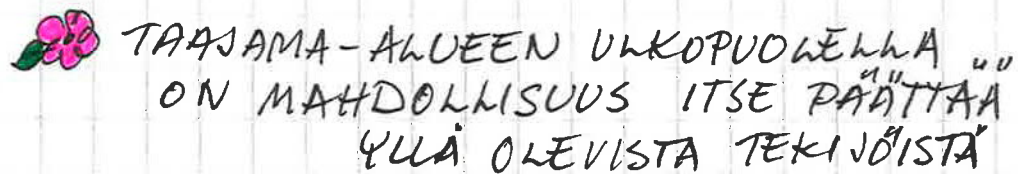 TAAJAMA-ALUEEN ULKOPUOLELLA
ON MAHDOLLISUUS ITSE PÄÄTTÄÄ
YLLÄ OLEVISTA TEKIJÖISTÄ